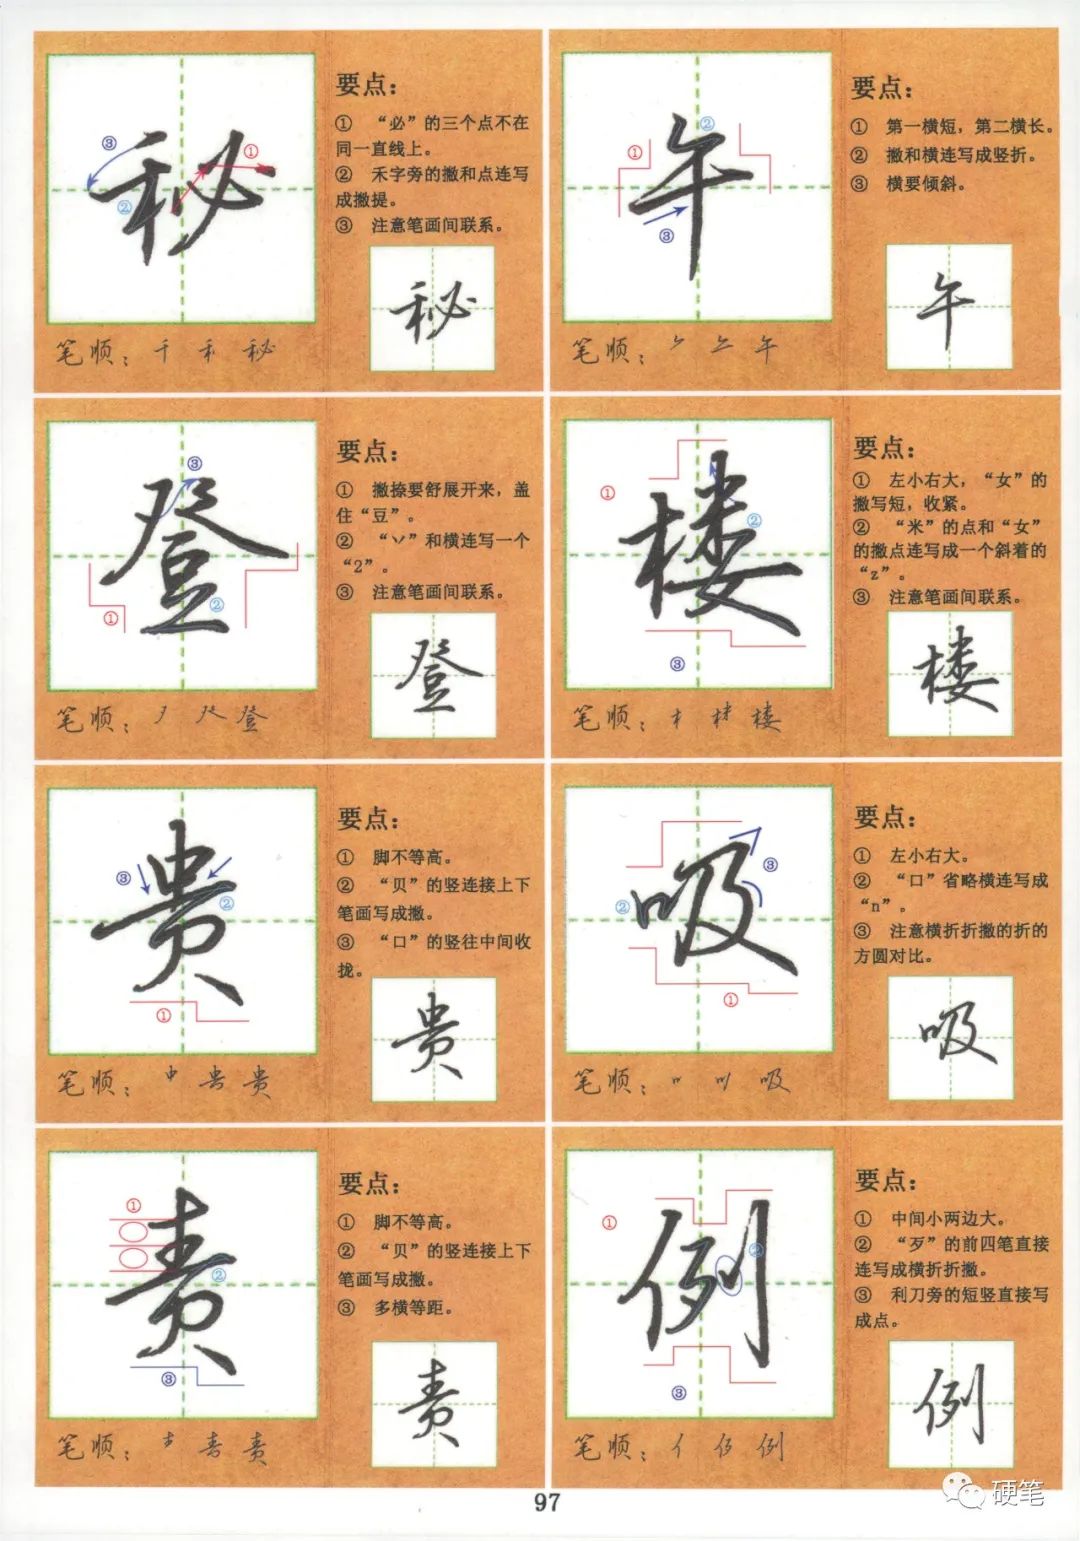 秘
①
②
③
要点：
① “必”的三个点不在
同一直线上。
② 禾字旁的撇和点连写
成撇提。
③ 注意笔画间联系。
秘
笔顺：千 禾 秘
午
①
②
③
要点：
① 第一横短，第二横长。
② 撇和横连写成竖折。
③ 横要倾斜。
午
笔顺：𠂉 午
登
①
②
③
要点：
① 撇捺要舒展开来，盖
住“豆”。
② “丷”和横连写一个
“2”。
③ 注意笔画间联系。
登
笔顺：癶 登
楼
①
②
③
要点：
① 左小右大，“女”的
撇写短，收紧。
② “米”的点和“女”
的撇点连写成一个斜着的
“z”。
③ 注意笔画间联系。
楼
笔顺：木 楼
贵
①
②
③
要点：
① 脚不等高。
② “贝”的竖连接上下
笔画写成撇。
③ “口”的竖往中间收
拢。
贵
笔顺：中 贵
吸
①
②
③
要点：
① 左小右大。
② “口”省略横连写成
“n”。
③ 注意横折折撇的折的
方圆对比。
吸
笔顺：吸
责
①
②
③
要点：
① 脚不等高。
② “贝”的竖连接上下
笔画写成撇。
③ 多横等距。
责
笔顺：责
例
①
②
③
要点：
① 中间小两边大。
② “歹”的前四笔直接
连写成横折折撇。
③ 利刀旁的短竖直接写
成点。
例
笔顺：亻 例
97
硬笔